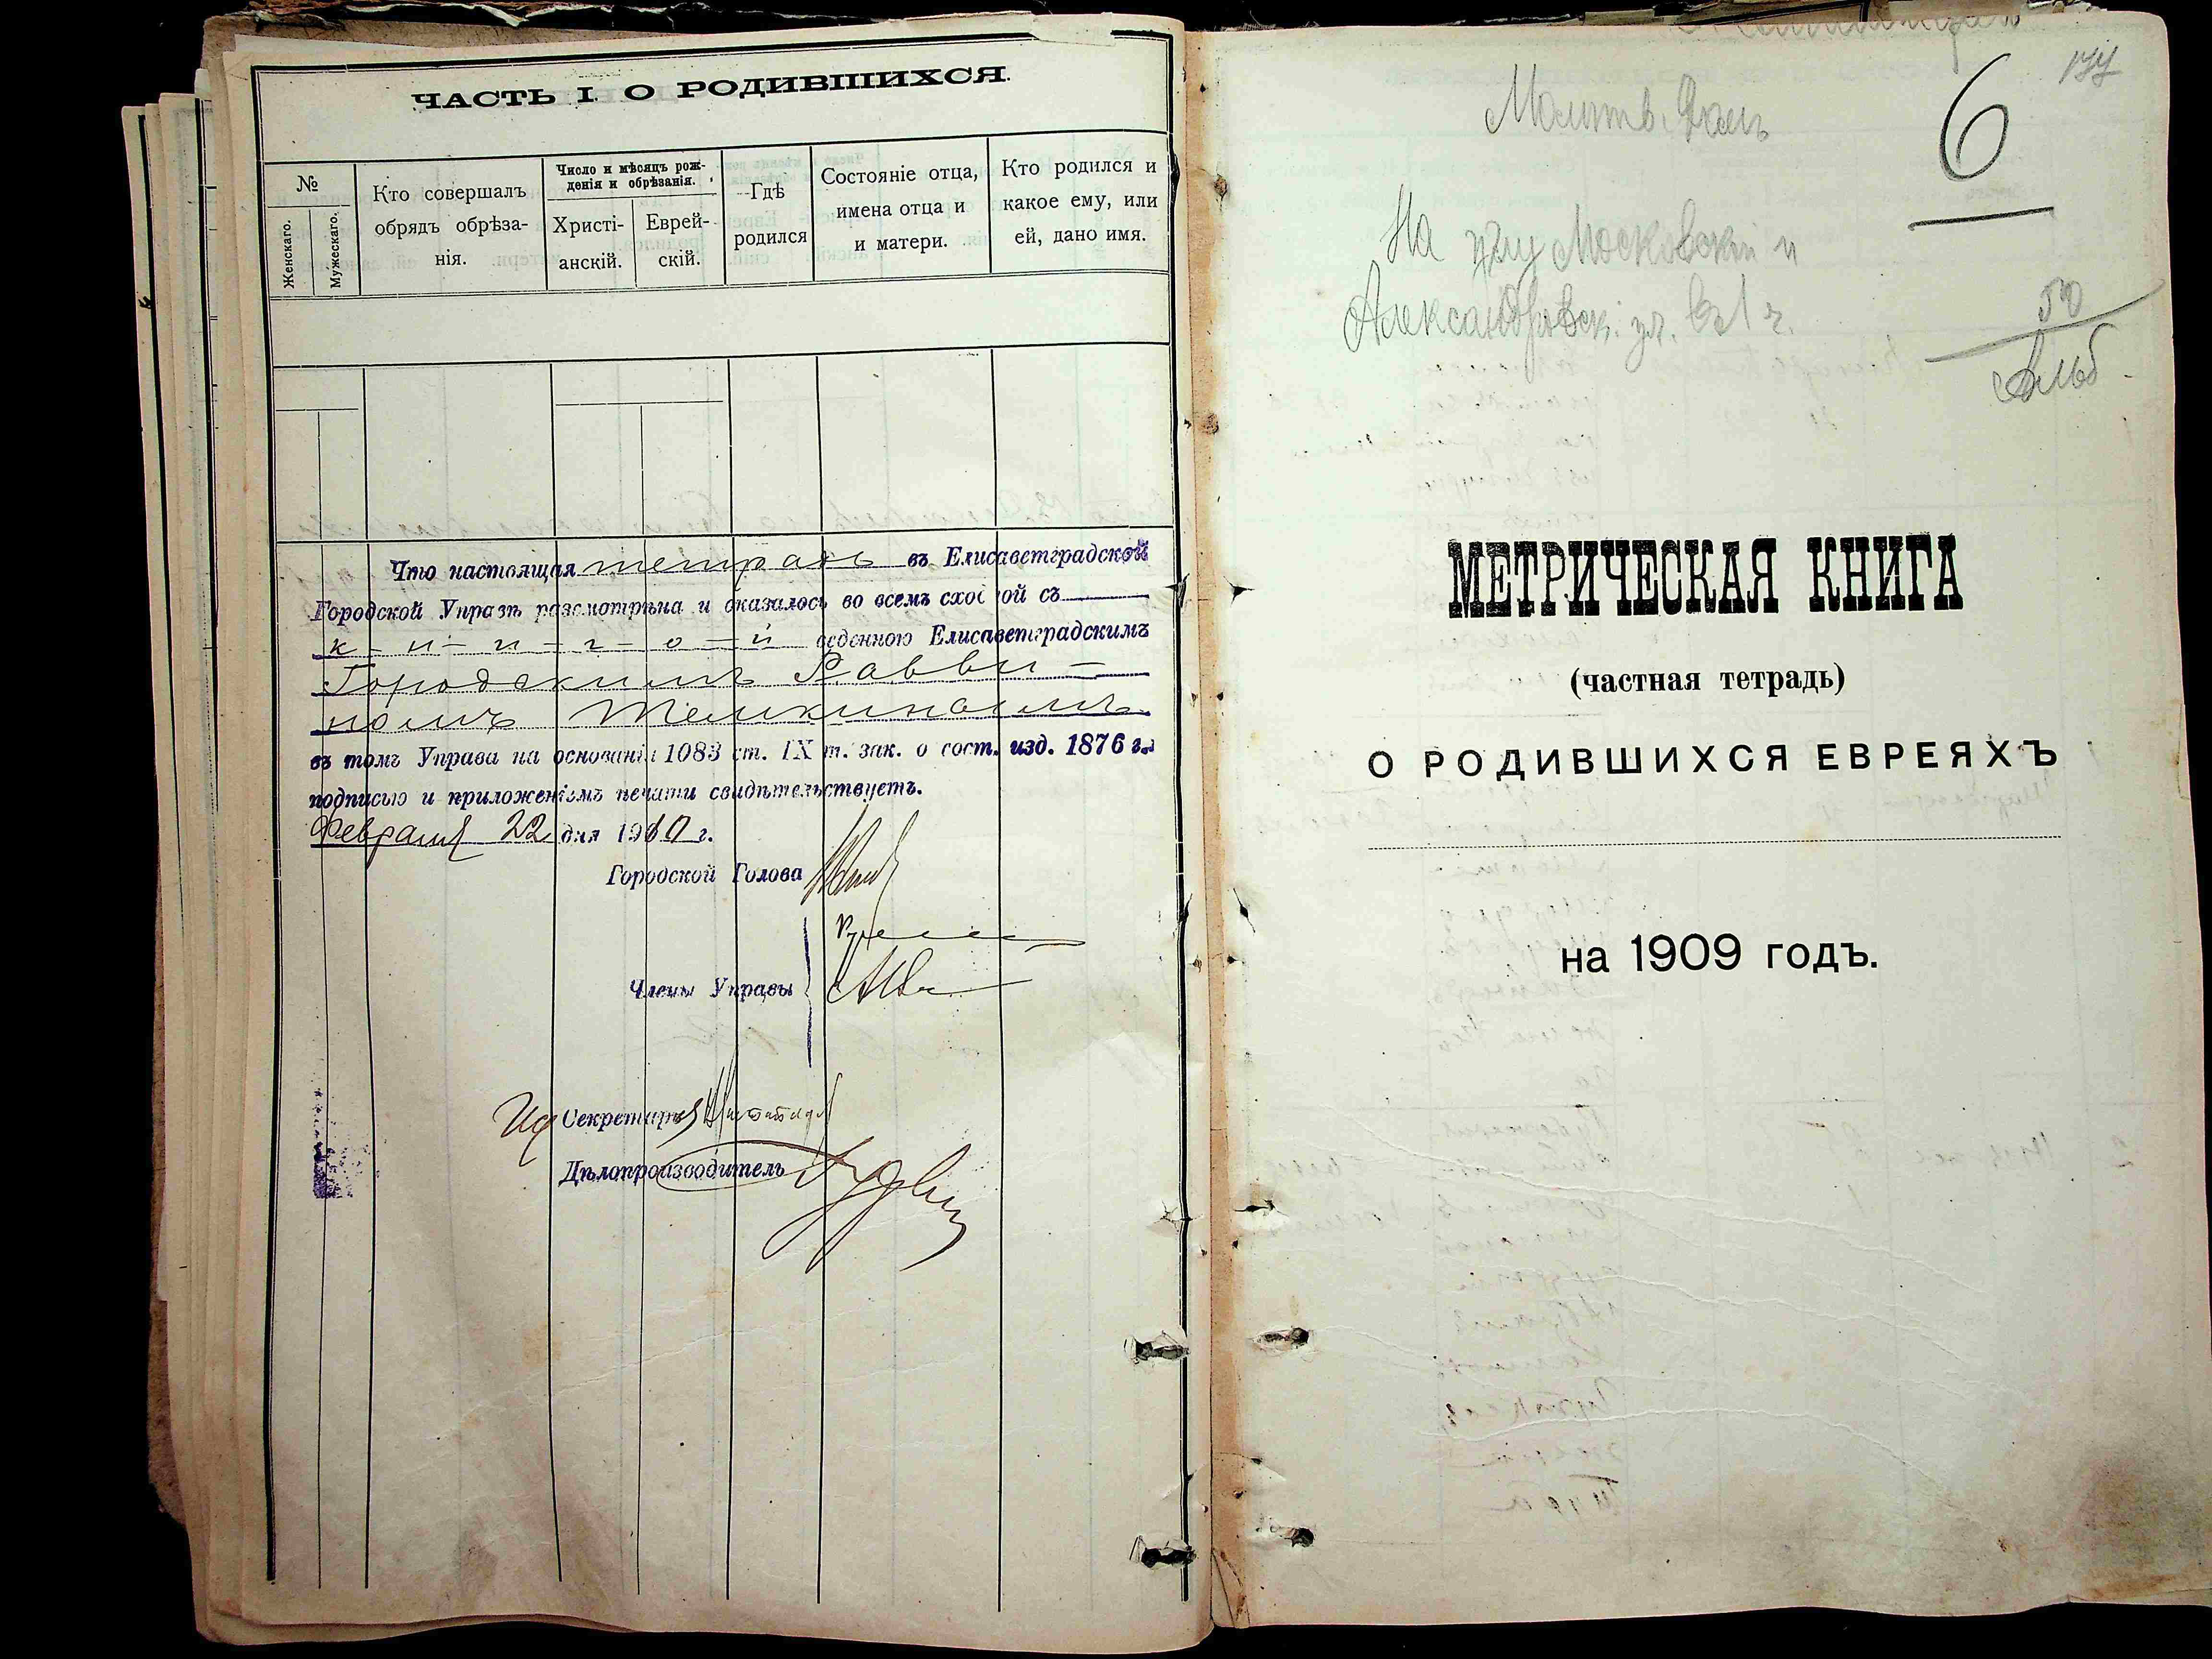 ЧАСТЬ I. О РОДИВШИХСЯ.
№
Женскаго.
Мужескаго.
Кто совершалъ
обрядъ обрѣза-
нія.
Число и мѣсяцъ рож-
денія и обрѣзанія.
Христі-
анскій.
Еврей-
скій.
Гдѣ
родился
Состояніе отца,
имена отца и
и матери.
Кто родился и
какое ему, или
ей, дано имя.
Что настоящая тетрадь въ Елисаветградской
Городской Управѣ разсмотрѣна и оказалось во всемъ сходной съ
к-н-и-г-о-й веденною Елисаветградскимъ
Городскимъ Равви-
номъ Темкинымъ
въ томъ Управа на основаніи 1083 ст. IX т. зак. о сост. изд. 1876 г.
подписью и приложеніемъ печати свидѣтельствуетъ.
Февраля 22 дня 1910 г.
Городской Голова
Члены Управы
Ид Секретаря
Дѣлопроизводитель
144
6
Молитв. Домъ
На углу Московской и
Александровск. ул. въ 1 ч.
50
Альб.
МЕТРИЧЕСКАЯ КНИГА
(частная тетрадь)
О РОДИВШИХСЯ ЕВРЕЯХЪ
на 1909 годъ.